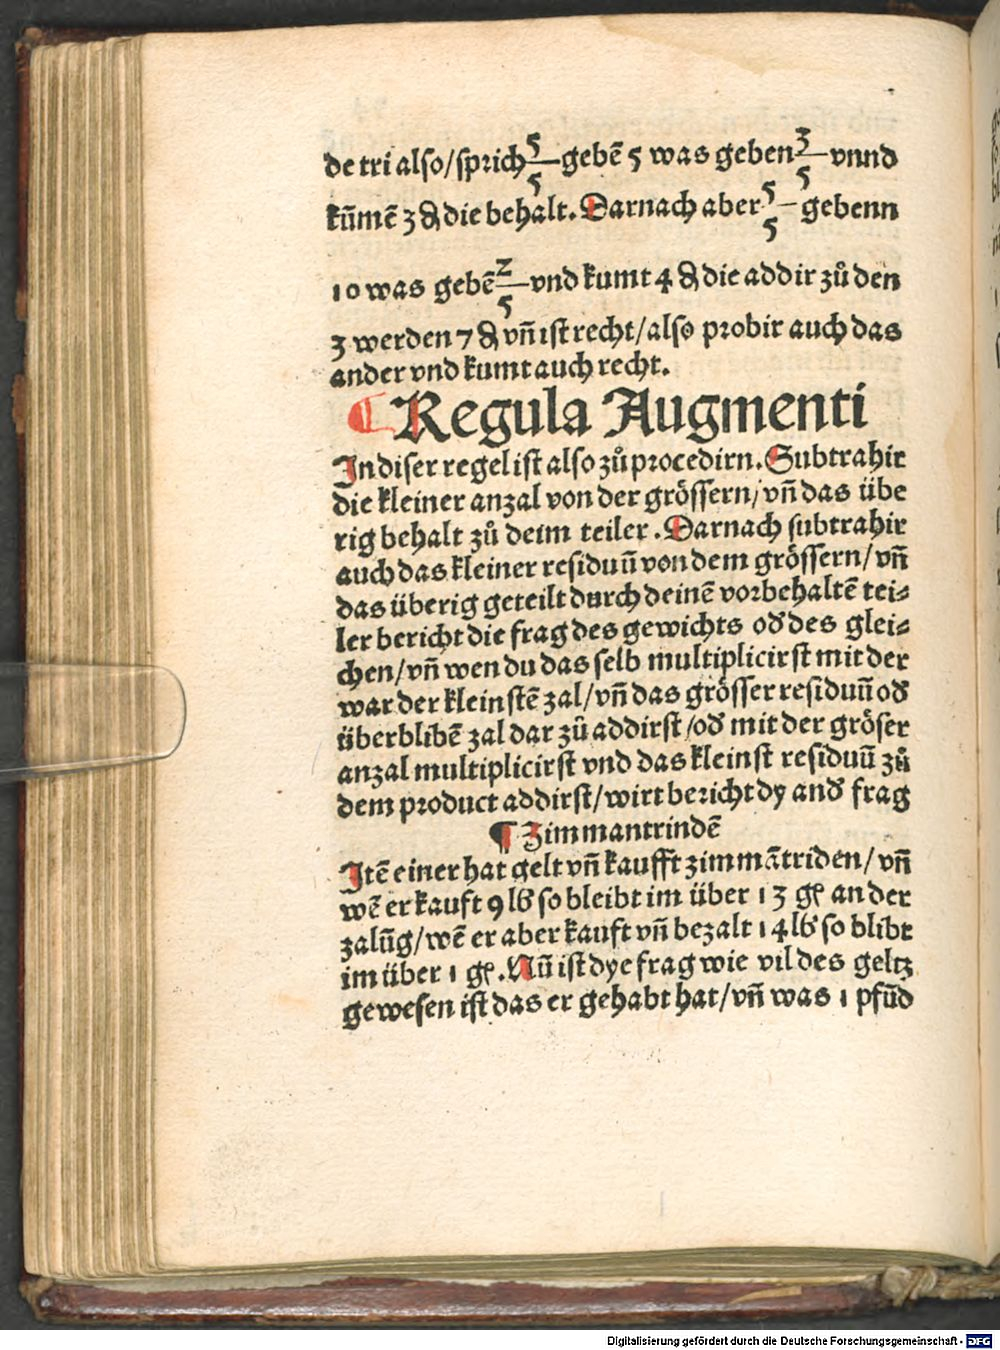 de tri also/sprich 5/5 gebē 5 was geben 3/5 vnnd
kūmē 3 ₰ die behalt. Darnach aber 5/5 gebenn
10 was gebē 2/5 vnd kumt 4 ₰ die addir zů den
3 werden 7 ₰ vn̄ ist recht/also probir auch das
ander vnd kumt auch recht.
¶ Regula Augmenti
In diser regel ist also zů procedirn. Subtrahir
die kleiner anzal von der grössern/vn̄ das übe
rig behalt zů deim teiler. Darnach subtrahir
auch das kleiner residuū von dem grössern/vn̄
das überig geteilt durch deinē vorbehaltē tei⸗
ler bericht die frag des gewichts od̕ des glei⸗
chen/vn̄ wen du das selb multiplicirst mit der
war der kleinstē zal/vn̄ das grösser residuū od̕
überblibē zal dar zů addirst/od̕ mit der gröser
anzal multiplicirst vnd das kleinst residuū zů
dem product addirst/wirt bericht dy and̕ frag
¶ Zimmantrindē
Itē einer hat gelt vn̄ kaufft zimmātriden/vn̄
wē er kauft 9 lb so bleibt im über 13 gl an der
zalūg/wē er aber kauft vn̄ bezalt 14 lb so blibt
im über 1 gl. Nū ist dye frag wie vil des geltz
gewesen ist das er gehabt hat/vn̄ was 1 pfūd
Digitalisierung gefördert durch die Deutsche Forschungsgemeinschaft - DFG